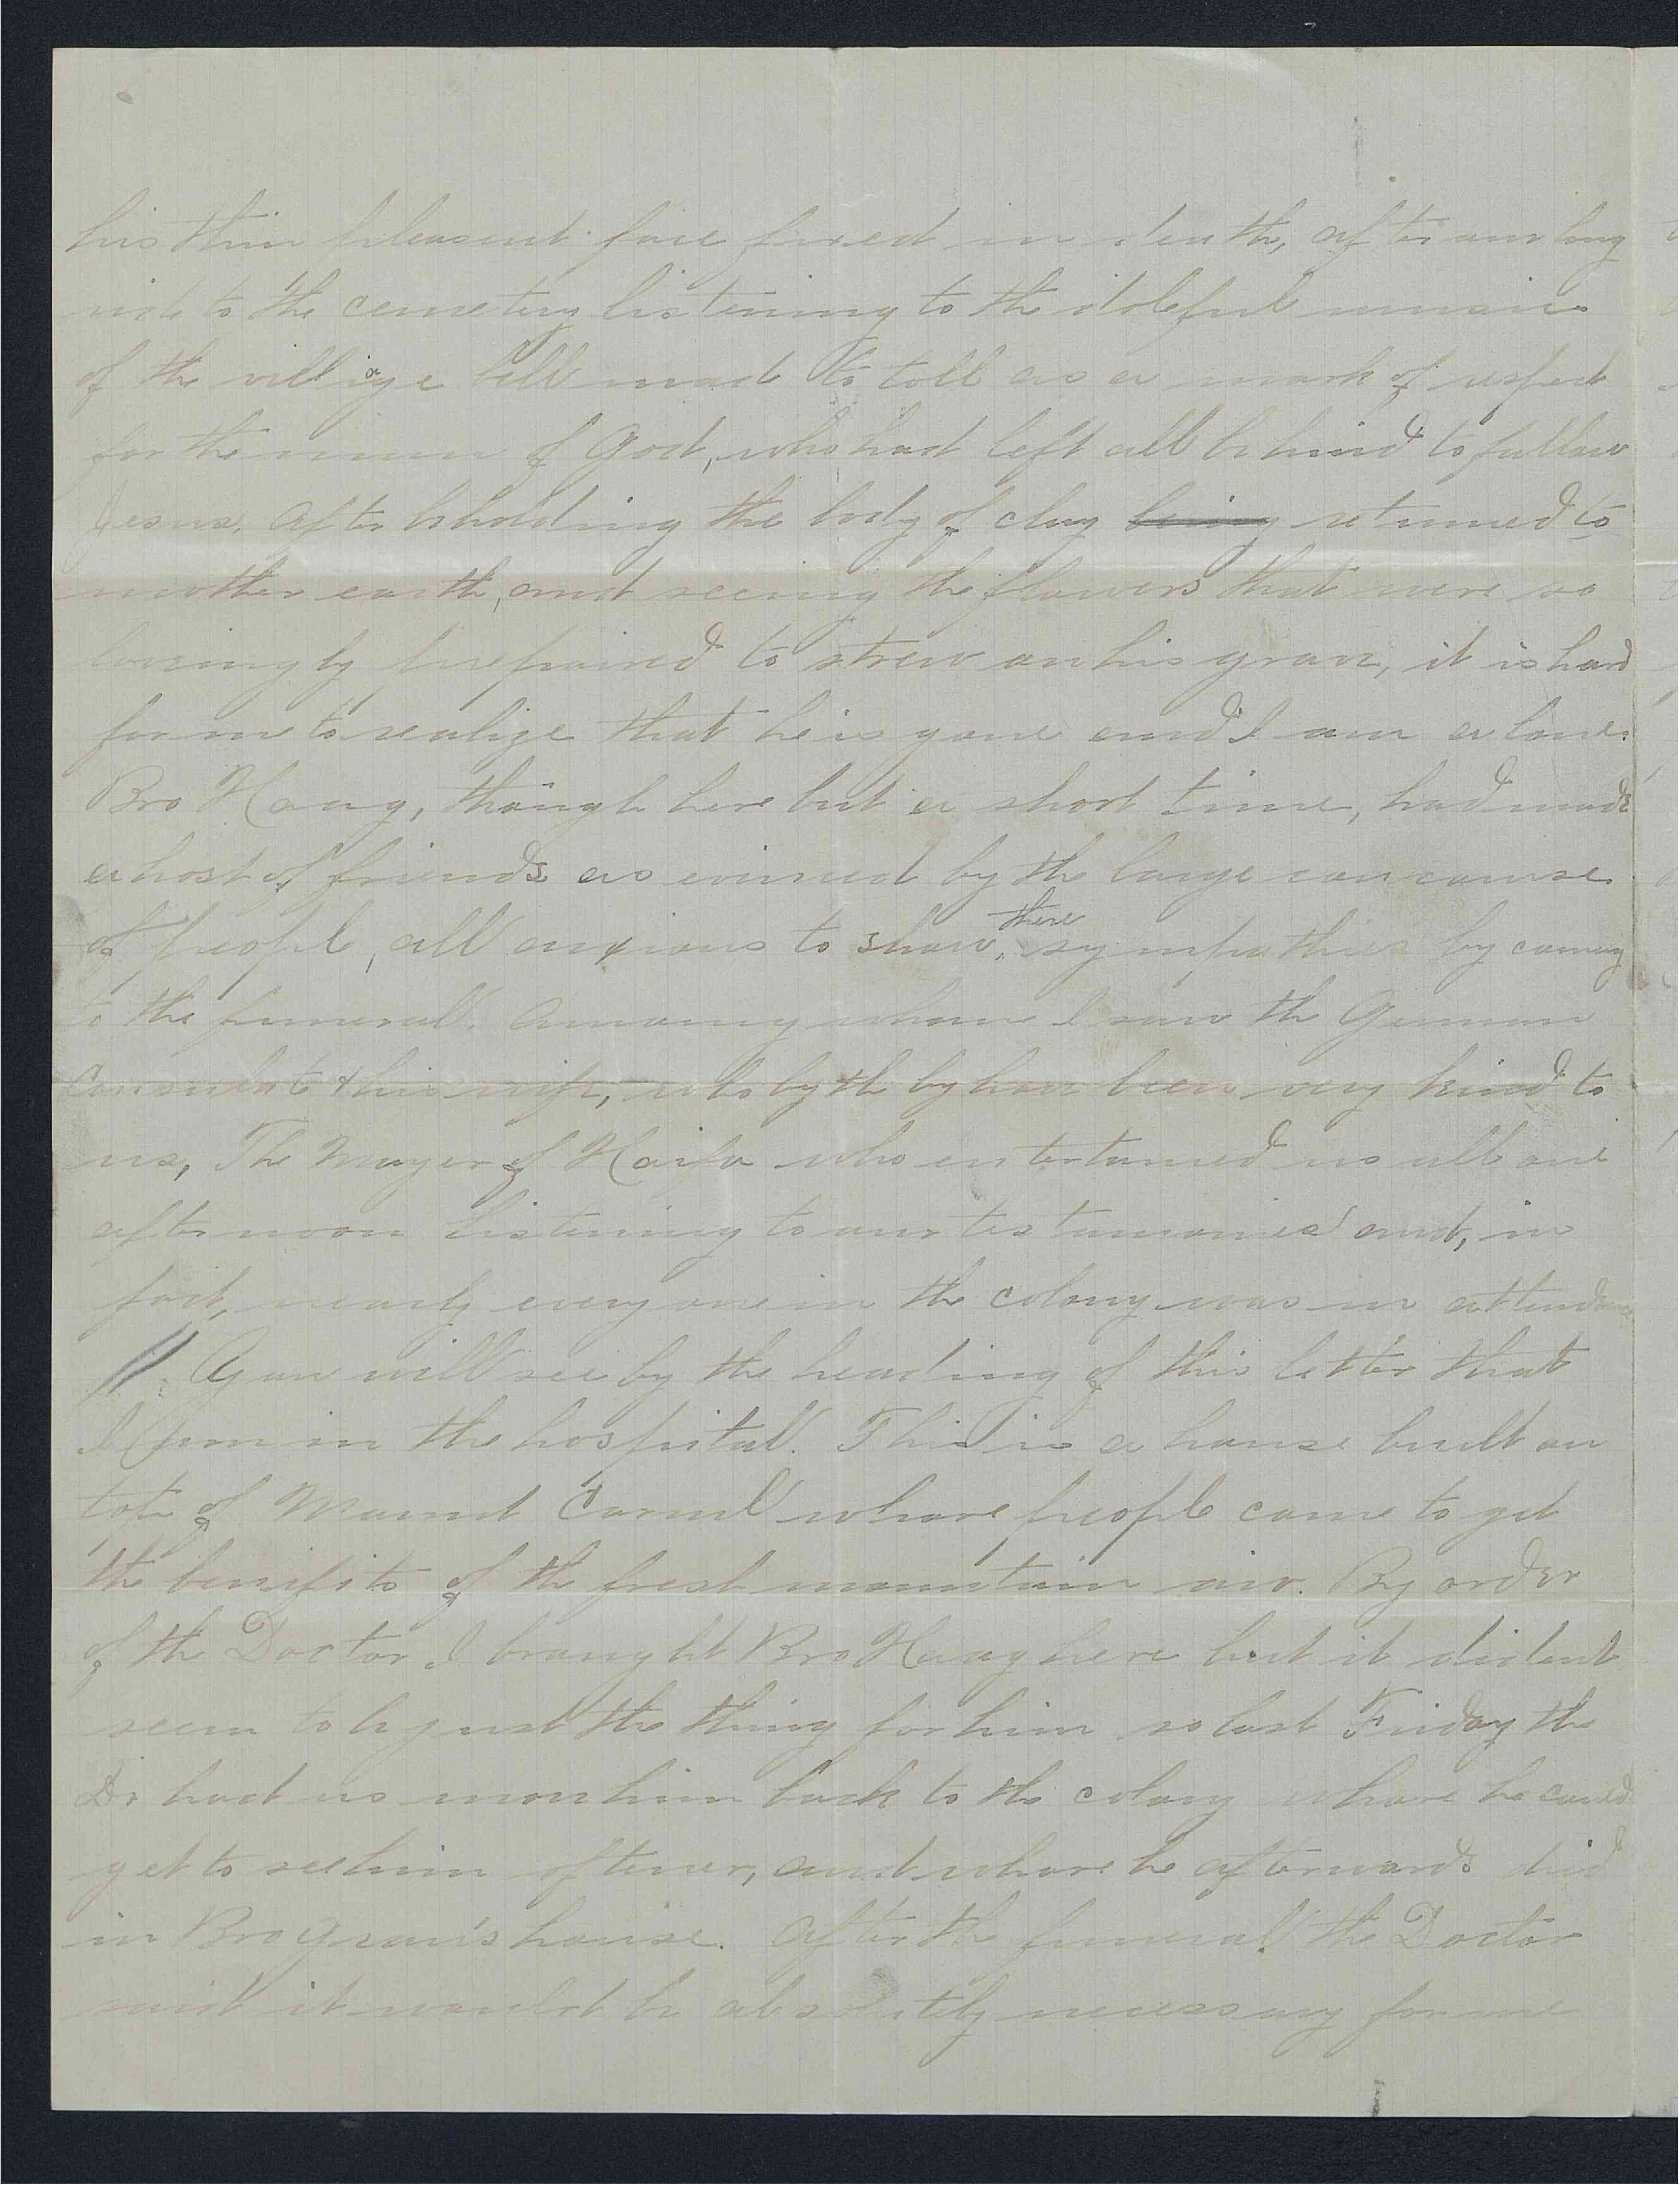 his thin pleasant face fixed in death, after our long
ride to the cemetery listening to the doleful music
of the village bell made to toll as a mark of respect
for the man of God, who had left all behind to follow
Jesus. After beholding the body of clay being returned to
mother earth, and seeing the flowers that were so
lovingly prepaired to strew on his grave, it is hard
for me to realize that he is gone and I am alone.
Bro Haag, though here but a short time, had made
a host of friends as evinced by the large concourse
of people, all anxious to show there sympathies by coming
to the funerall. Among whom I saw the German
Consulate & his wife, who by the by have been very kind to
us, The Mayer of Haifa who entertained us all one
afternoon listening to our testamonies and, in
fact, nearly every one in the colony was in attendance
// You will see by the heading of this letter that
I am in the hospital. This is a house built on
top of Mount Carmel whare people come to get
the benifits of the fresh mountain air. By order
of the Doctor I brought Bro Haag here but it dident
seem to be just the thing for him so last Friday the
Dr had us move him back to the colony whare he could
get to see him oftener, and whare he afterwards died
in Bro Graus's house. After the funeral the Doctor
said it would be absolutely necessary for me